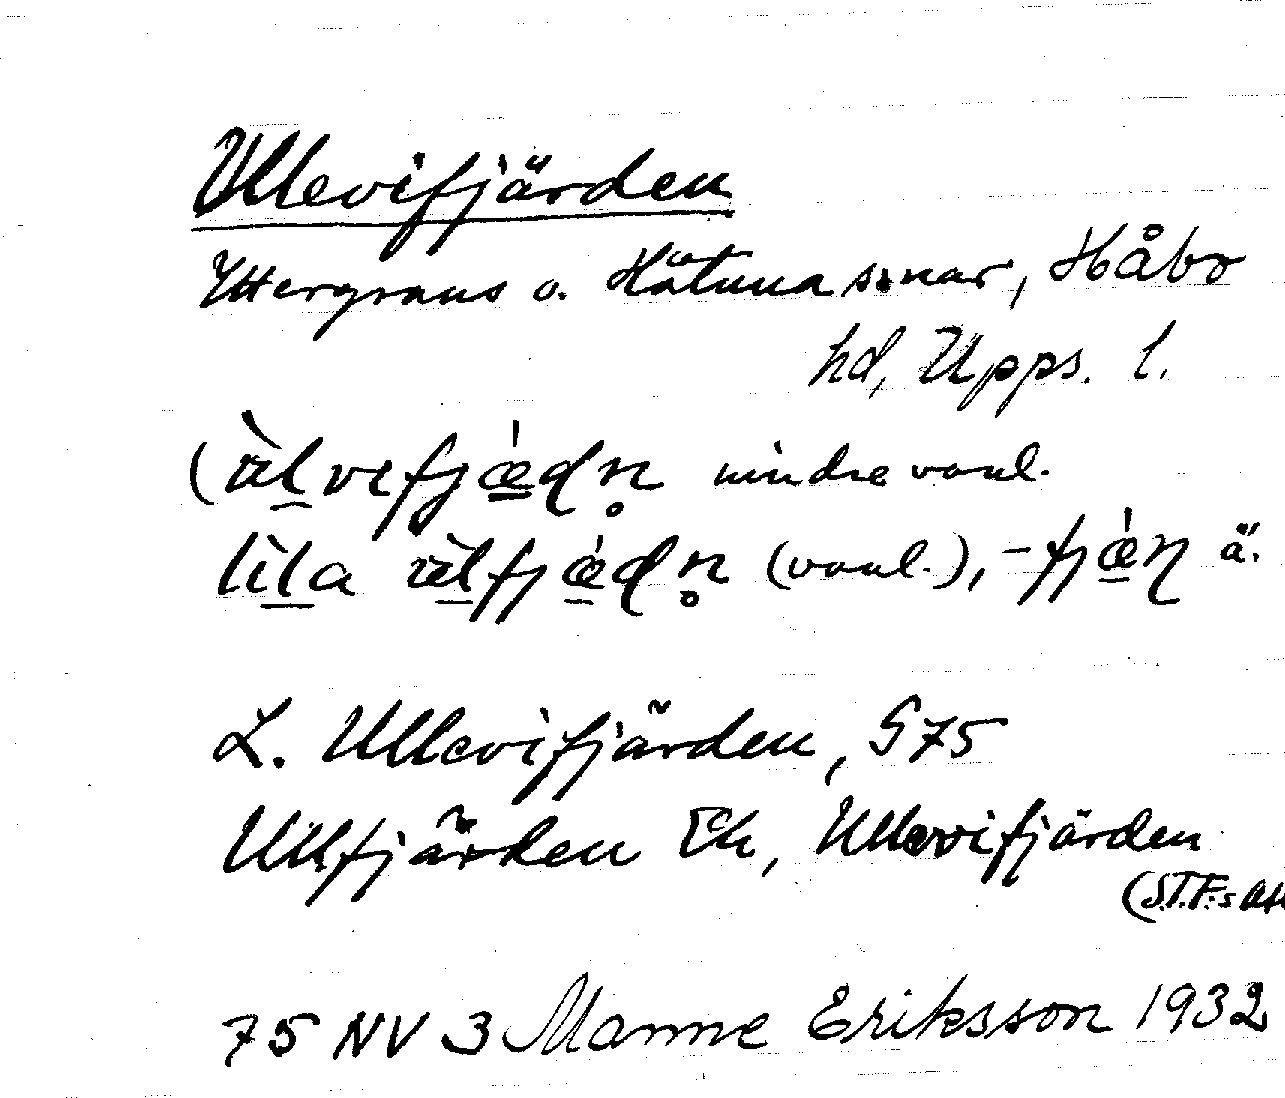 Ullevifjärden
Yttergrans o. Håtuna s:nar, Håbo
hd, Upps. l.
mindre vanl.
(vanl.), ä.
L. Ullevifjärden, S75
Ullfjärden Ek, Ullevifjärden
(S.T.F:s
75 NV 3 Manne Eriksson 1932